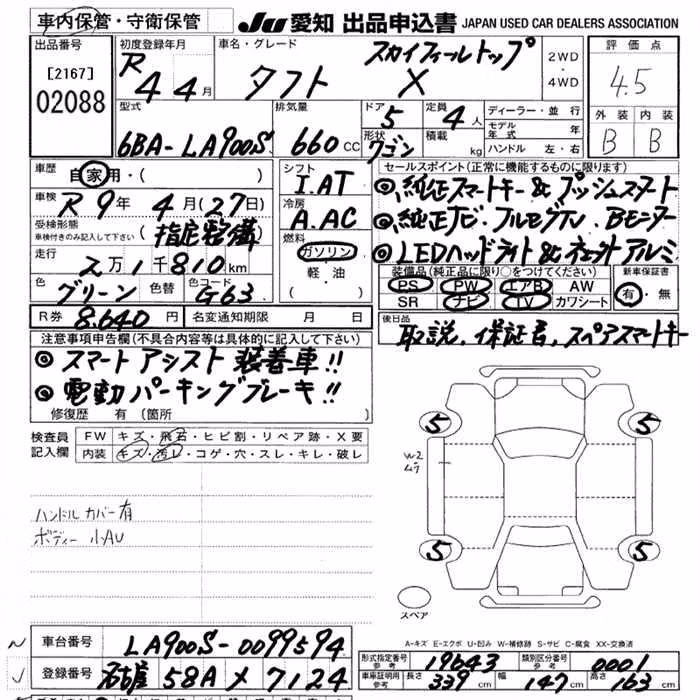 車内保管・守衛保管 JU 愛知 出品申込書 JAPAN USED CAR DEALERS ASSOCIATION
出品番号 初度登録年月 車名・グレード 評価点
[2167] R 4 4月 タフト スカイフィールトップ X 2WD・4WD 4.5
02088
型式 排気量 ドア 5 定員 4人 ディーラー・並行 外装 内装
モデル年式 年
6BA-LA900S 660cc 形状 ワゴン 積載 kg ハンドル 左・右 B B
車歴 自家用・( ) シフト I.AT セールスポイント(正常に機能するものに限ります)
車検 R9年 4月(27日) 冷房 A.AC ◎純正スマートキー&プッシュスタート
受検形態 車検付きのみ記入して下さい (指定整備) ◎純正ナビ・フルセグTV、Bモニター
走行 2万1千810km 燃料 ガソリン・軽油 ◎LEDヘッドライト&
色 グリーン 色替 色コード G63 装備品(純正品に限り○をつけてください) 新車保証書
PS PW エアB AW 有・無
SR ナビ TV カワシート
R券 8.640円 名変通知期限 月 日 後日品
取説、保証書、スペアスマートキー
注意事項申告欄(不具合内容等は具体的に記入して下さい)
◎スマートアシスト装着車!!
◎電動パーキングブレーキ!!
修復歴 有(箇所 )
検査員記入欄 FW キズ・飛石・ヒビ割・リペア跡・X要
内装 キズ・汚レ・コゲ・穴・スレ・キレ・破レ
5 5
W2
ムラ
ハンドルカバー有
ボディー小AU
5 5
スペア
A-キズ E-エクボ U-凹み W-補修跡 S-サビ C-腐食 XX-交換済
車台番号 LA900S-0099594
形式指定番号 参考 19643 類別区分番号 参考 0001
登録番号 名古屋 58A メ 7124
車庫証明用参考 長さ 339cm 幅 147cm 高さ 163cm